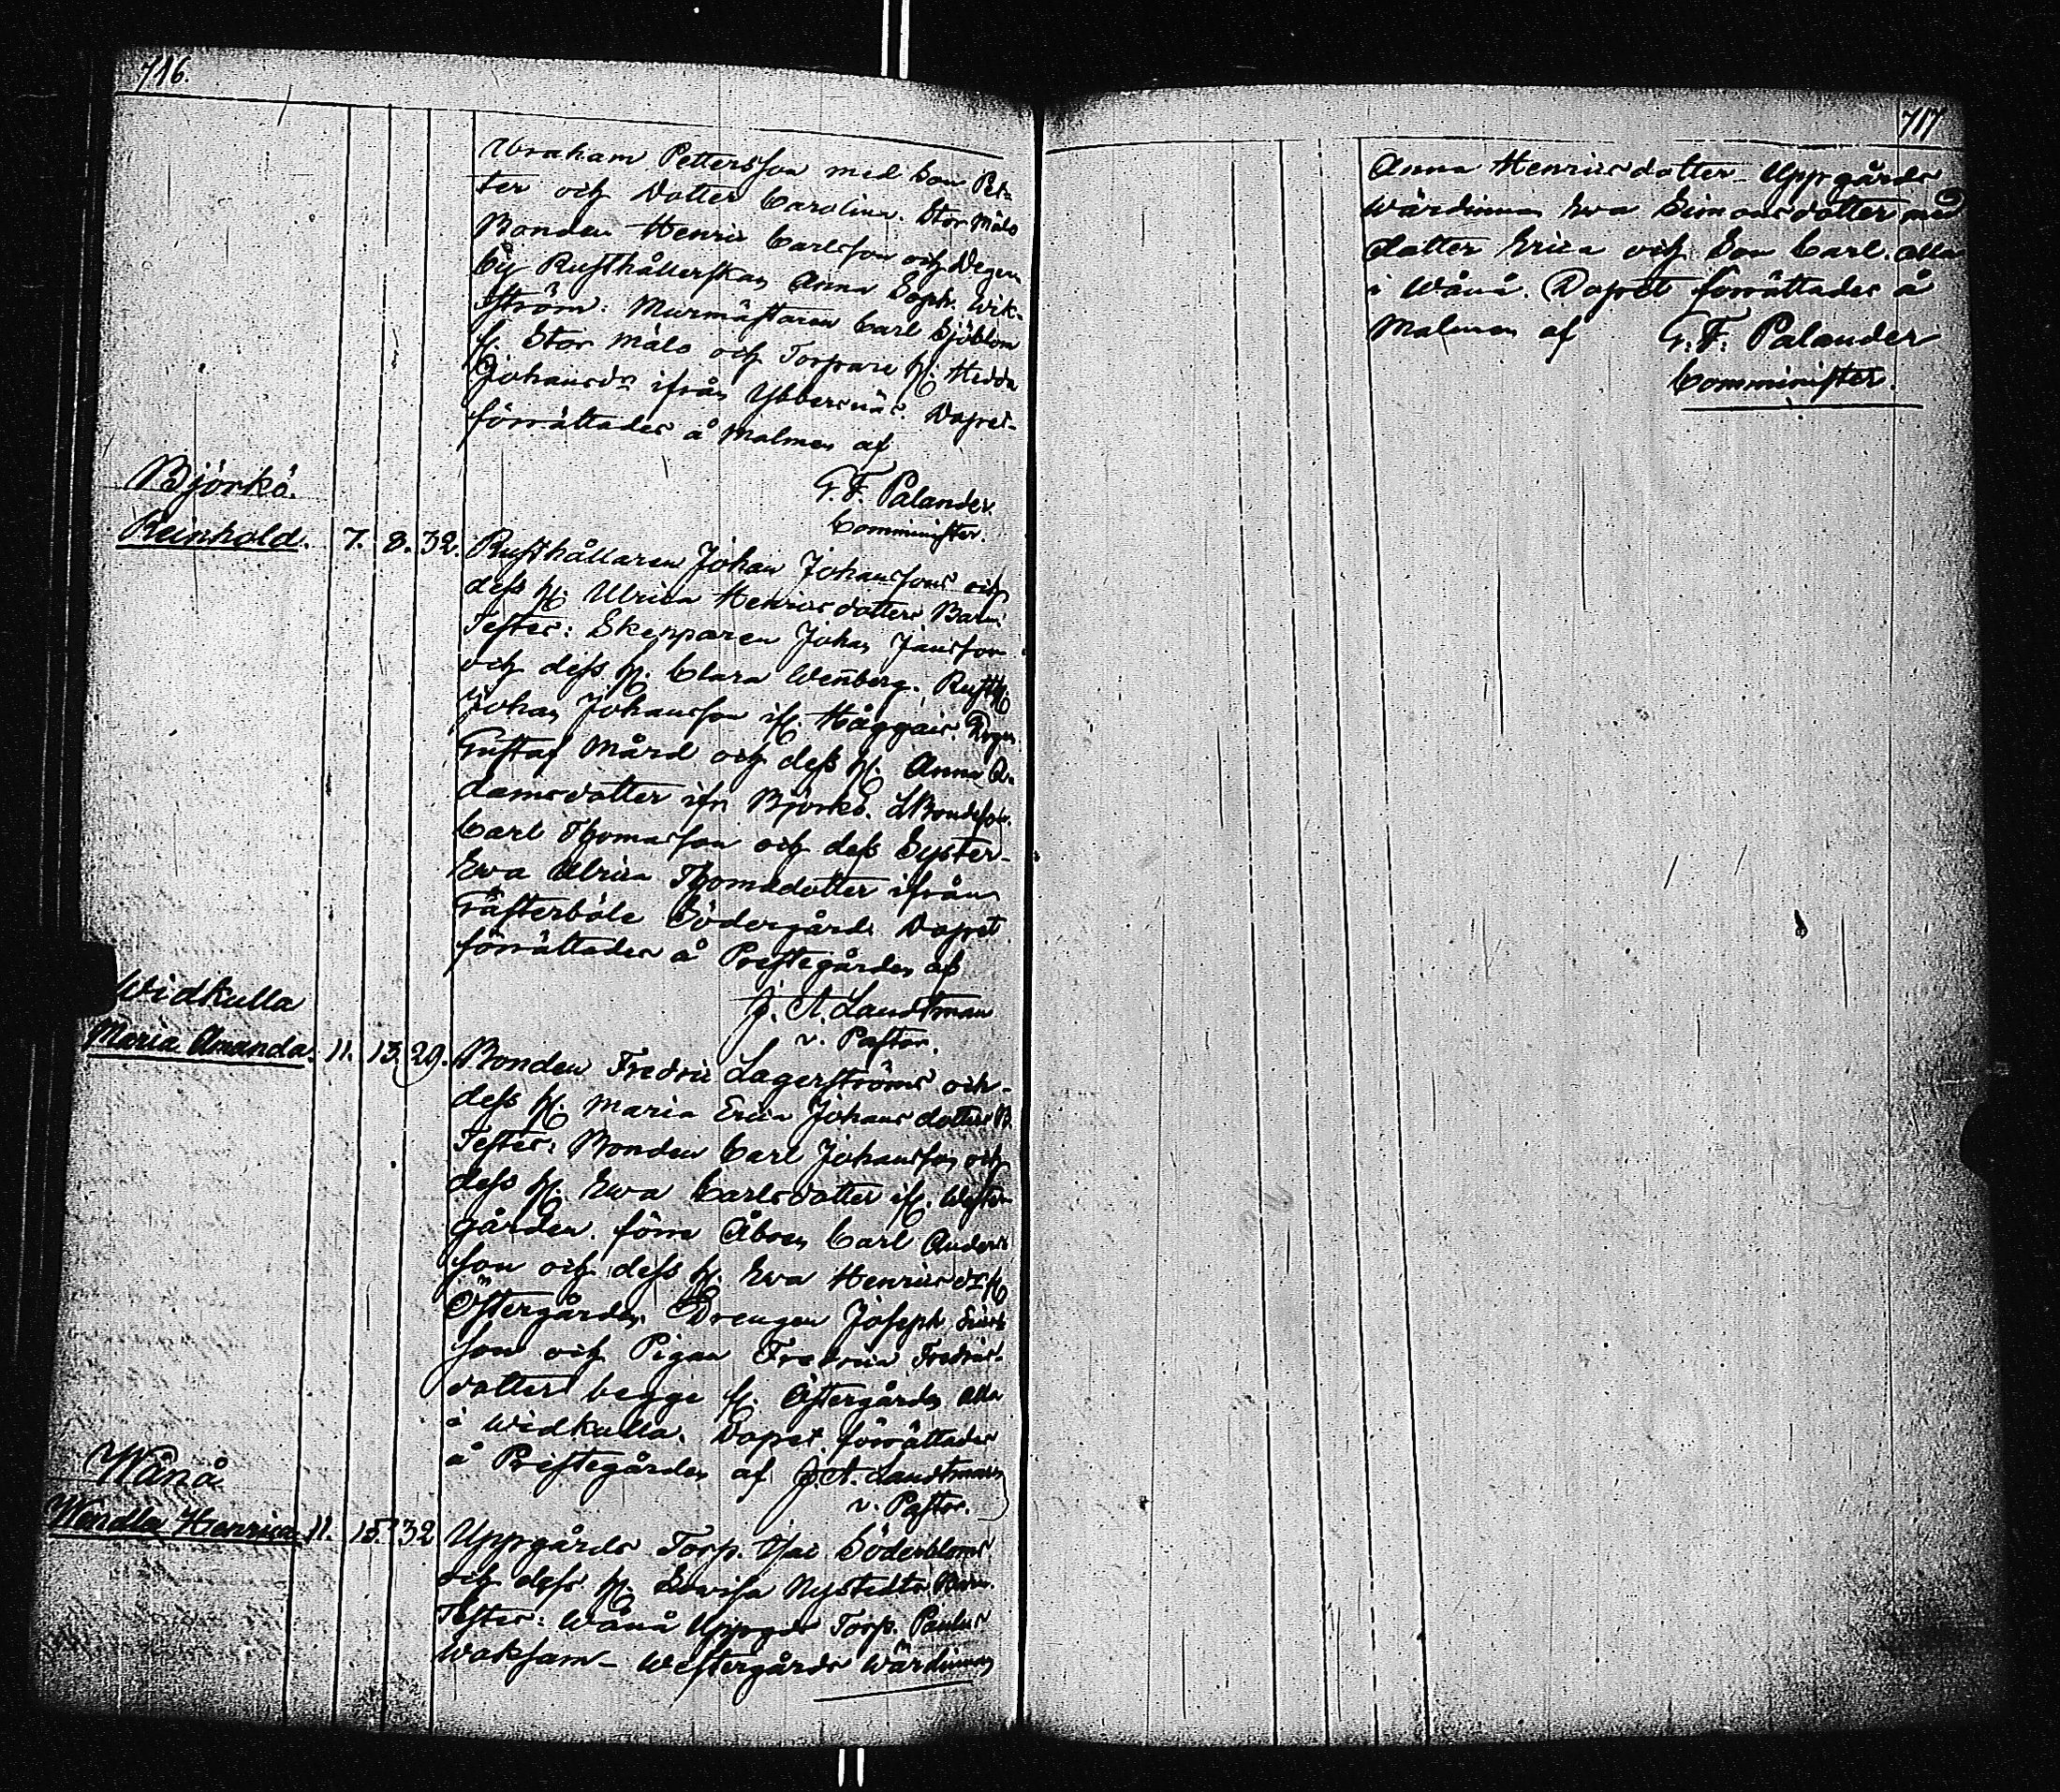 716.
Abraham Pettersson med Son Pet-
ter och Dotter Carolina. Stor Mälo
Bonden Henric Carlsson och Degen
by Rusthållerskan Anna Soph. Wik-
ström: Murmästaren Carl Sjöblom
fr. Stor Mälo och Torpare H. Hedda
Johansdr ifrån Ybbersnäs. Dopet
förrättades å Malmen af
G. F. Palander.
Comminister.
Björkö.
Reinhold. 7. 8. 32. Rusthållaren Johan Johanssons och
dess H. Ulrica Henricsdotters Barn.
Testes: Skepparen Johan Jansson
och dess H. Clara Wenberg. Rusth.
Johan Johansson if. Håggais.
Gustaf Mård och dess H. Anna A-
damsdotter ifn Björkö. Bondeson.
Carl Thomasson och dess Syster
Ewa Ulrica Thomsdotter ifrån
Gästerböle Södergård. Dopet
förrättades å Prestegården af
J. A. Landtman
v. Pastor.
Widkulla
Maria Amanda. 11. 13. 29. Bonden Fredric Lagerströms och
dess H. Maria Erica Johansdotters B.
Testes: Bonden Carl Johansson och
dess H. Ewa Carlsdotter if. Wester
gården. förre Åboen Carl Anders
son och dess H. Ewa Henricsdr fr
Östergården. Drengen Joseph
son och Pigan Fredrica Fredrics-
dotter begge fr. Östergården alla
i Widkulla. Dopet förrättades
å Prestegården af J. A. Landtman
v. Pastor.
Wånå
Wendla Henrica 11. 15. 32 Uppgårds Torp. Isac Söderbloms
och dess H. Lovisa Nystedts Barn.
Testes: Wånå Uppgds Torp. Paulus
Waksam - Westergårds Wärdinnan
717
Anna Henricsdotter - Uppgårds
Wärdinnan Ewa Simonsdotter med
dotter Erica och Son Carl. alla
i Wånå. Dopet förrättades å
Malmen af G. F. Palander
Comminister.